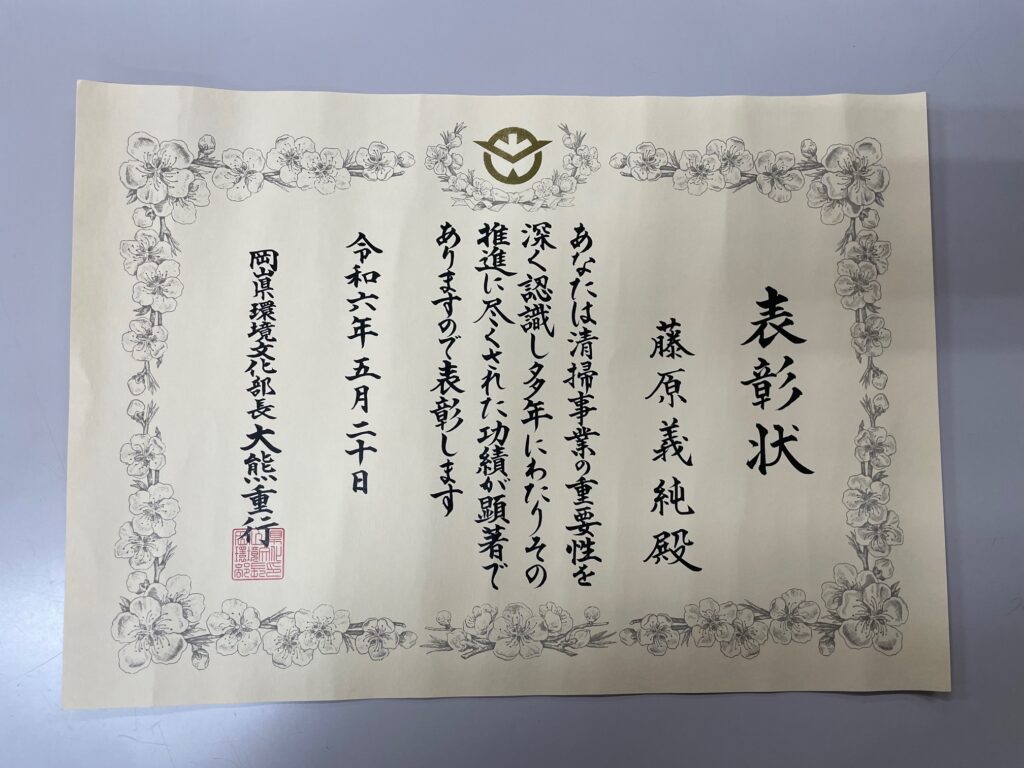 表彰状
藤原義純殿
あなたは清掃事業の重要性を
深く認識し多年にわたりその
推進に尽くされた功績が顕著で
ありますので表彰します
令和六年五月二十日
岡山県環境文化部長大熊重行